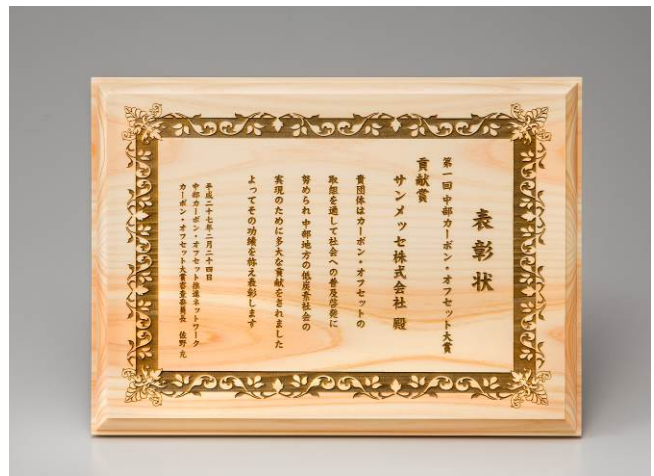 表彰状
第一回 中部カーボン・オフセット大賞
貢献賞
サンメッセ株式会社 殿
貴団体はカーボン・オフセットの
取組を通して社会への普及啓発に
努められ 中部地方の低炭素社会の
実現のために多大な貢献をされました
よってその功績を称え表彰します
平成二十七年二月二十四日
中部カーボン・オフセット推進ネットワーク
カーボン・オフセット大賞審査委員長 佐野 充